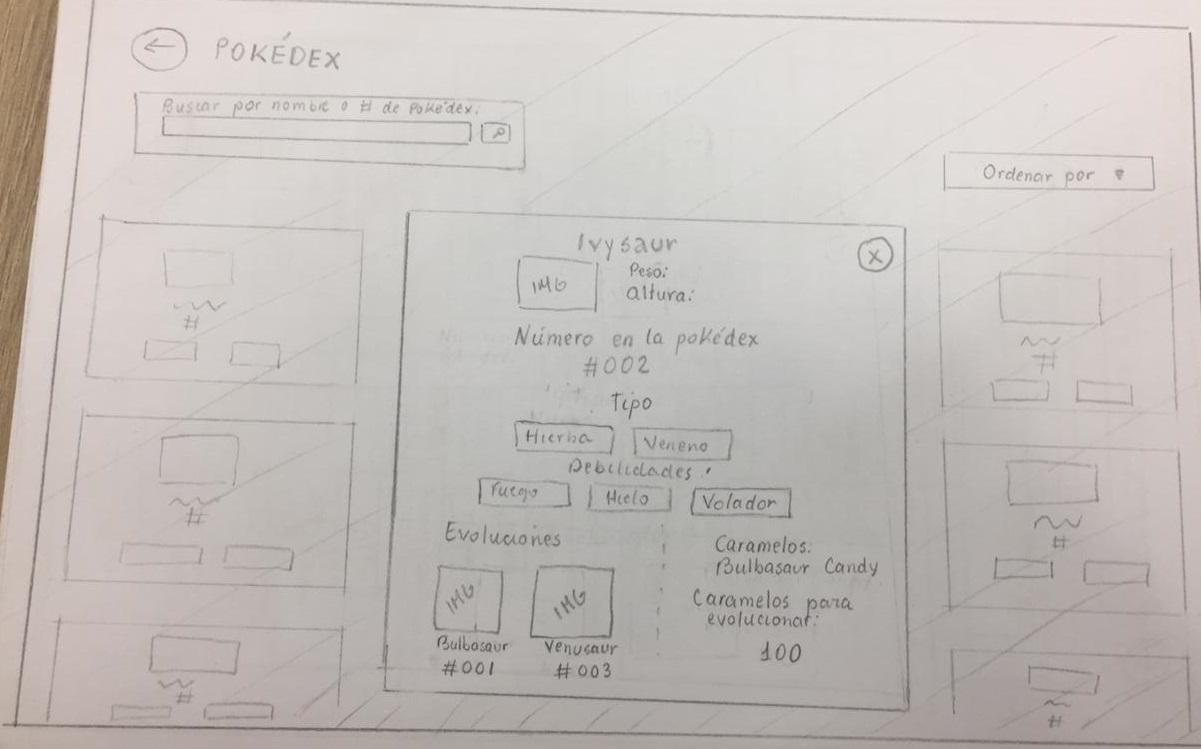 POKÉDEX
Buscar por nombre o # de Pokédex:
Ordenar por
Ivysaur
X
IMG
Peso:
altura:
Número en la pokédex
#002
Tipo
Hierba
Veneno
Debilidades:
Fuego
Hielo
Volador
Evoluciones
IMG
IMG
Bulbasaur
#001
Venusaur
#003
Caramelos:
Bulbasaur Candy
Caramelos para
evolucionar:
100
#
#
#
#
#
#